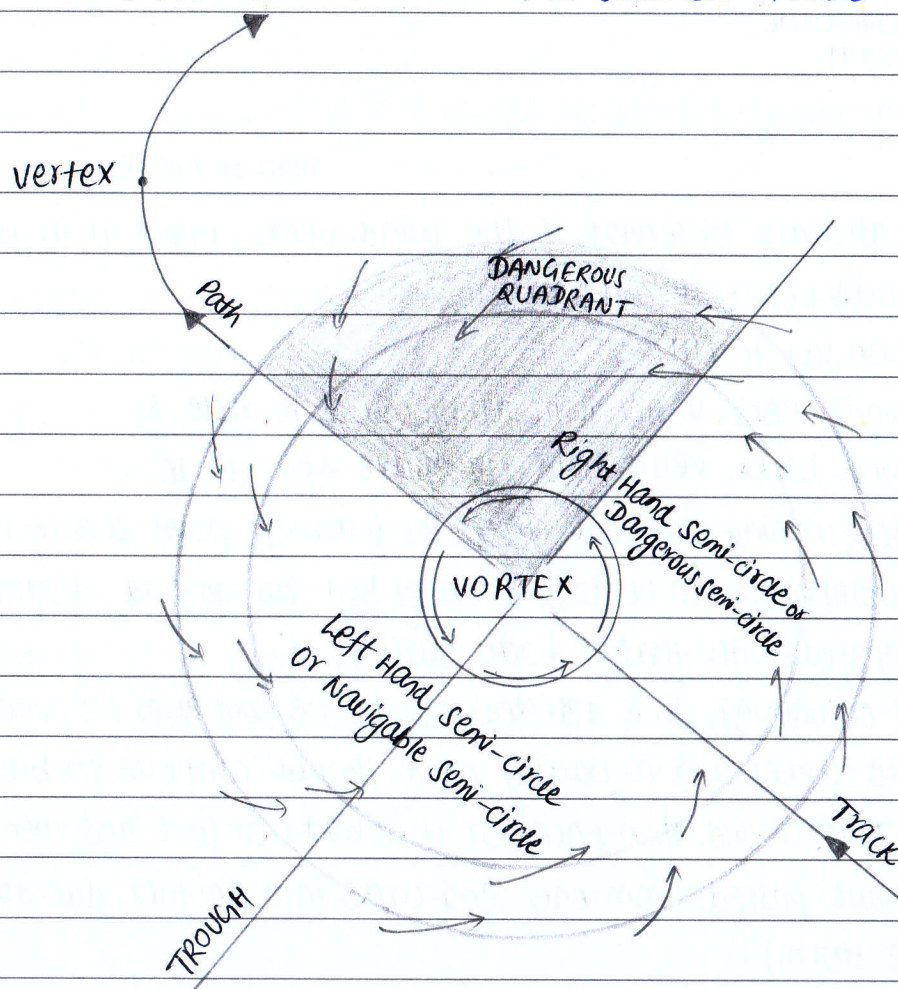 vertex
Path
DANGEROUS
QUADRANT
Right Hand Semi-circle or
Dangerous semi-circle
VORTEX
Left Hand Semi-circle
or Navigable Semi-circle
TRACK
TROUGH